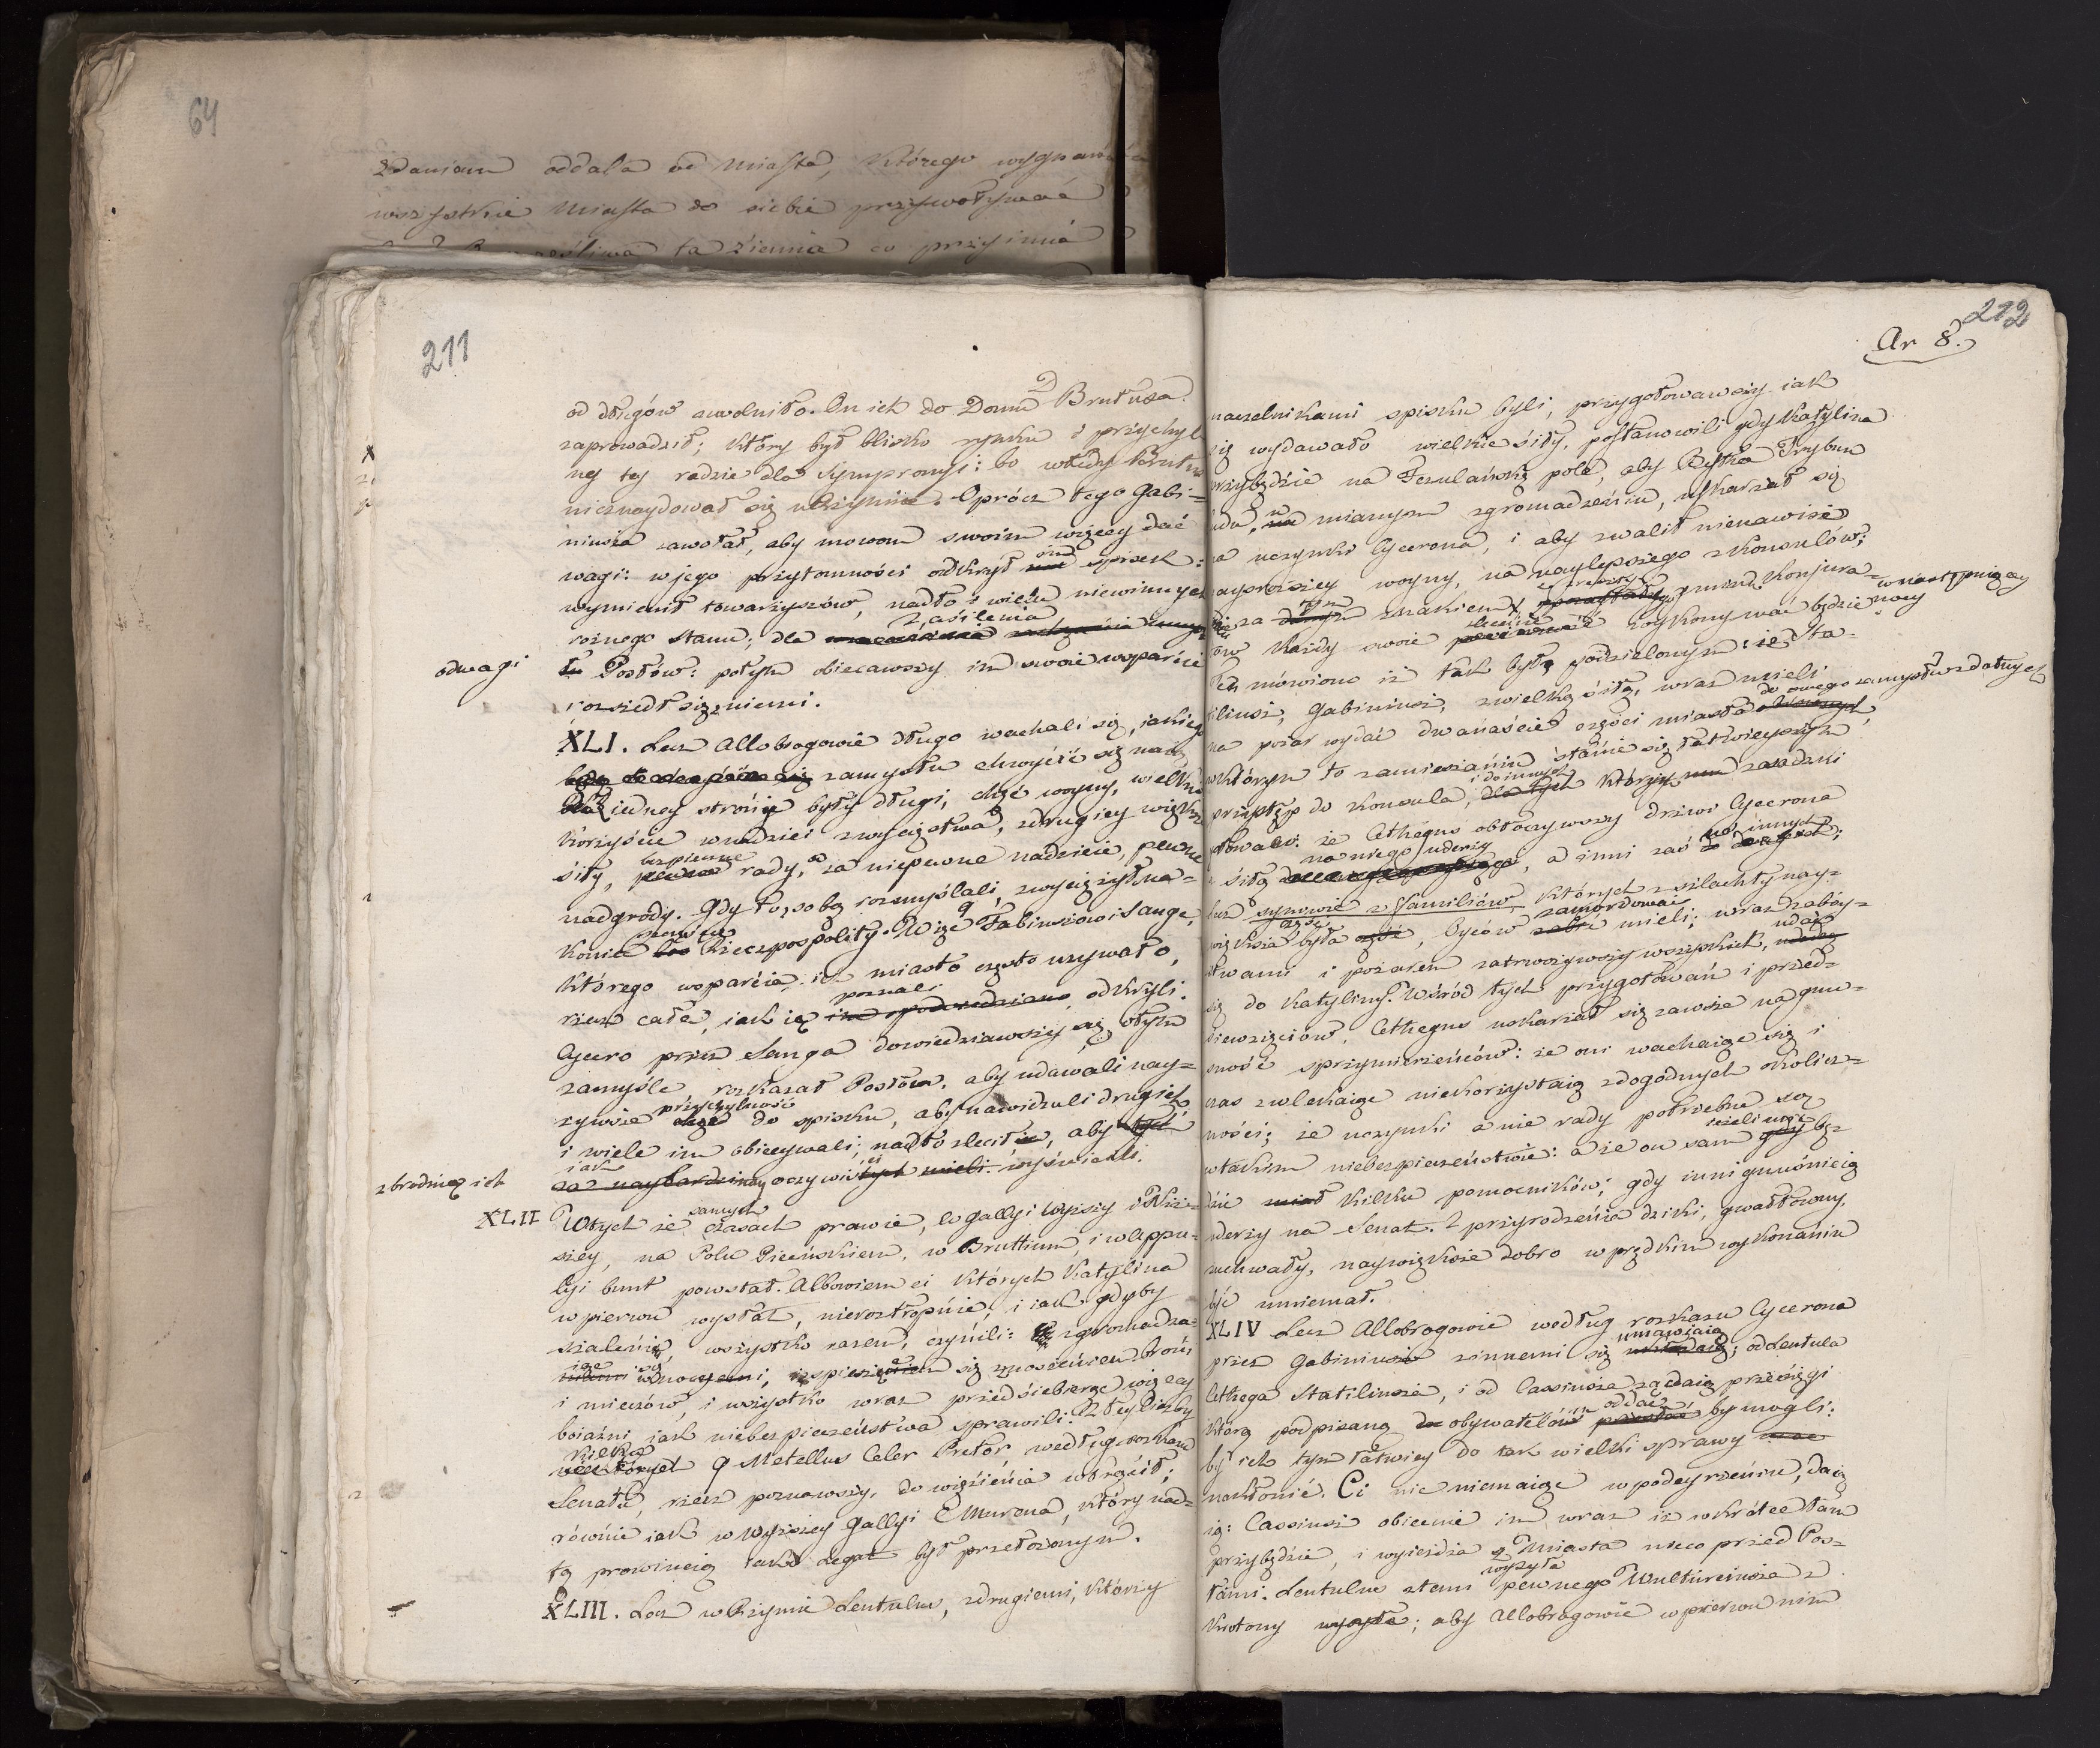 64
zdaniem oddala od Miasta, którego wygnańca
wszystkie Miasta do siebie przywoływać
ta Ziemia co przyimie
211
od długów uwolniło. On ich do Domu D Brutusa
zaprowadził; który był blisko rynku i przychyl
ney tey radzie dla Symproniji: bo wtedy Brutus
nieznaydował się w Rzymie. Oprócz tego Gabi=
niusza zawołał, aby mowom swoim więcey dać
wagi: w jego przytomności odkrył im spisek:
wymienił towarzyszów, nadto i wielu niewinnych
rożnego stanu; dla zasilenia
odwagi
Posłów: potym obiecawszy im swoie wsparcie
rozszedł się z niemi.
XLI. Lecz Allobrogowie długo wachali się, jakiego
zamysłu chwycić się maią
z iedney strony były długi, chęć woyny, wielkie
korzyście w nadziei zwycięstwa, z drugiey większe
siły, bezpieczne rady, za niepewne nadzieie pewne
nadgrody. Gdy to z sobą rozmyślali, zwyciężyło na=
koniec szczęście Rzeczpospolity. Więc Q Fabiusiowi Sanga,
którego wsparcia ich miasto często używało,
rzecz całą, iak ią poznali odkryli.
Cycero przez Sanga dowiedziawszy się o tym
zamyśle, rozkazał Posłom, aby udawali nay=
żywsze przychylność do spisku, aby nawidzali drugich
i wiele im obiecywali; nadto zlecił im, aby
zbrodnię ich
iak naybardziey oczywiście wyświecili.
XLII W tych że samych czasach prawie, w Gallyi Wyższey i Niż=
szey, na Polu Piceńskiem, w Bruttium, i w Appu=
lyi bunt powstał. Albowiem ci których Katylina
wpierwu wysłał, nieroztropnie, i iak gdyby
szaleni, wszystko razem, czynili: zgromadza=
iąc się w nocy, śpiesząc się z noszeniem broni
i mieczów, i wszystko wraz przedsiebierze więcey
boiaźni jak niebezpieczeństwa sprawili. Z tey liczby
kilku Q Metellus Celer Pretor według rozkazu
Senatu, rzecz poznawszy, do więzienia wtrącił;
równie iak w Wyższey Gallyi C Murena, który nad=
tą prowincią iako Legat był przełożonym.
XLIII. Lecz w Rzymie Lentulus, z drugiemi, którzy
212
Ar 8.
naczelnikami spisku byli, przygotowawszy iak
się wydawało wielkie siły, postanowili gdy Katylina
przybędzie na Fezulańskie pole, aby Bestia Trybun
ludu, w mianym zgromadzeniu, uskarżał się
na uczynki Cycerona, i aby zwalił nienawiść
nayprzszey woyny, na naylepszego z konsulów;
za tym znakiem, w następuiący
nocy
ów każdy swoie zlecenie wykonywać będzie
Lecz mówiono iż tak byłą podzielonym: że Sta=
tiliusz, Gabiniusz, z wielką siłą, wraz mieli
na pożar wydać dwanaście części miasta do owego zamysłu zdatnych
w którym to zamieszaniu stanie się łatwieyszym
przystęp do konsula, i do innych którzym zasadzki
gotowali: że Cethegus obtoczywszy drzwi Cycerona
siłą na niego uderzy, a inni zaś na innych;
lecz synowie z familiów, których z szlachty nay=
większa część była, Oyców zamordować mieli; wraz zabóy=
stwami i pożarem zatrwożywszy wszystkich, udać
się do Katyliny. Wśród tych przygotowań i przed=
siewzięciów, Cethegus uskarżał się zawsze na gnu=
sność sprzymierzeńców: że oni wachaiąc się i
czas zwlekaiąc niekorzystaią z dogodnych okolicz=
ności; że uczynki a nie rady potrzebne są
w takim niebezpieczeństwie: a że on sam ieżeli mieć bę=
dzie kilku pomocników, gdy inni gnuśnieią
uderzy na Senat. Z przyrodzenia dziki, gwałtowny,
zuchwały, naywiększe dobro w prędkim wykonaniu
być mniemał.
XLIV Lecz Allobrogowie według rozkazu Cycerona
przez Gabiniusza z innemi się umawiaią; od Lentula
Cethega Statiliusza, i od Cassiusza żądaią przysięgi
którą podpisaną obywatelom oddać by mogli:
by ich tym łatwiey do tak wielki sprawy
nakłonić. Ci nic niemaiąc w podeyrzeniu, daią
ią: Cassiusz obiecuie im wraz iż wkrótce tam
przybędzie, i wyieżdża z Miasta nieco przed Pos=
łami. Lentulus z temi wysyła pewnego Wulturciusza z
Krotony; aby Allobrogowie wpierwu nim